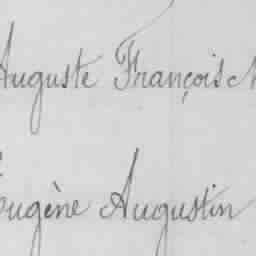 Auguste François
Eugène Augustin